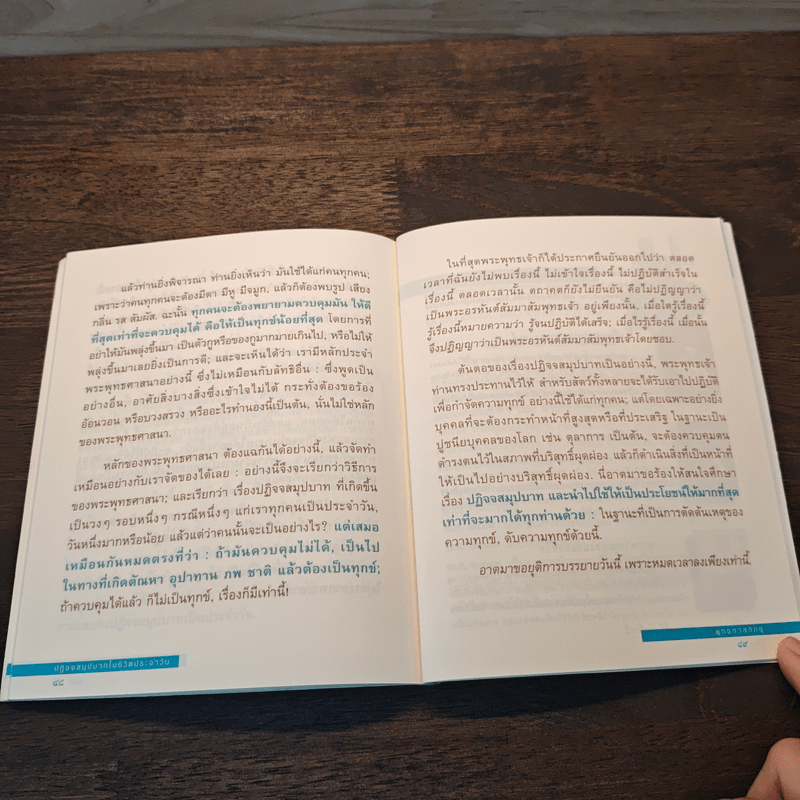 แล้วท่านยิ่งพิจารณา ท่านยิ่งเห็นว่า มันใช้ได้แก่คนทุกคน;
เพราะว่าคนทุกคนจะต้องมีตา มีหู มีจมูก, แล้วก็ต้องพบรูป เสียง
กลิ่น รส สัมผัส. ฉะนั้น ทุกคนจะต้องพยายามควบคุมมัน ให้ดี
ที่สุดเท่าที่จะควบคุมได้ คือให้เป็นทุกข์น้อยที่สุด โดยการที่
อย่าให้มันพลุ่งขึ้นมา เป็นตัวกูหรือของกูมากมายเกินไป, หรือไม่ให้
พลุ่งขึ้นมาเลยยิ่งเป็นการดี; และจะเห็นได้ว่า เรามีหลักประจำ
พระพุทธศาสนาอย่างนี้ ซึ่งไม่เหมือนกับลัทธิอื่น : ซึ่งพูดเป็น
อย่างอื่น, อาศัยสิ่งบางสิ่งซึ่งเข้าใจไม่ได้ กระทั่งต้องขอร้อง
อ้อนวอน หรือบวงสรวง หรืออะไรทำนองนี้เป็นต้น, นั่นไม่ใช่หลัก
ของพระพุทธศาสนา.
หลักของพระพุทธศาสนา ต้องแฉกันได้อย่างนี้, แล้วจัดทำ
เหมือนอย่างกับเราจัดของได้เลย : อย่างนี้จึงจะเรียกว่าวิธีการ
ของพระพุทธศาสนา; และเรียกว่า เรื่องปฏิจจสมุปบาท ที่เกิดขึ้น
เป็นวงๆ รอบหนึ่งๆ กรณีหนึ่งๆ แก่เราทุกคนเป็นประจำวัน,
วันหนึ่งมากหรือน้อย แล้วแต่ว่าคนนั้นจะเป็นอย่างไร? แต่เสมอ
เหมือนกันหมดตรงที่ว่า : ถ้ามันควบคุมไม่ได้, เป็นไป
ในทางที่เกิดตัณหา อุปาทาน ภพ ชาติ แล้วต้องเป็นทุกข์;
ถ้าควบคุมได้แล้ว ก็ไม่เป็นทุกข์, เรื่องก็มีเท่านี้!
ปฏิจจสมุปบาทในชีวิตประจำวัน
๔๘
ในที่สุดพระพุทธเจ้าก็ได้ประกาศยืนยันออกไปว่า ตลอด
เวลาที่ฉันยังไม่พบเรื่องนี้ ไม่เข้าใจเรื่องนี้ ไม่ปฏิบัติสำเร็จใน
เรื่องนี้ ตลอดเวลานั้น ตถาคตก็ยังไม่ยืนยัน คือไม่ปฏิญญาว่า
เป็นพระอรหันต์สัมมาสัมพุทธเจ้า อยู่เพียงนั้น, เมื่อใดรู้เรื่องนี้
รู้เรื่องนี้หมายความว่า รู้จนปฏิบัติได้เสร็จ; เมื่อไรรู้เรื่องนี้ เมื่อนั้น
จึงปฏิญญาว่าเป็นพระอรหันต์สัมมาสัมพุทธเจ้าโดยชอบ.
ต้นตอของเรื่องปฏิจจสมุปบาทเป็นอย่างนี้, พระพุทธเจ้า
ท่านทรงประทานไว้ให้ สำหรับสัตว์ทั้งหลายจะได้รับเอาไปปฏิบัติ
เพื่อกำจัดความทุกข์ อย่างนี้ใช้ได้แก่ทุกคน; แต่โดยเฉพาะอย่างยิ่ง
บุคคลที่จะต้องกระทำหน้าที่สูงสุดหรือที่ประเสริฐ ในฐานะเป็น
ปูชนียบุคคลของโลก เช่น ตุลาการ เป็นต้น, จะต้องควบคุมตน
ดำรงตนไว้ในสภาพที่บริสุทธิ์ผุดผ่อง แล้วก็ดำเนินสิ่งที่เป็นหน้าที่
ให้เป็นไปอย่างบริสุทธิ์ผุดผ่อง. นี่อาตมาขอร้องให้สนใจศึกษา
เรื่อง ปฏิจจสมุปบาท และนำไปใช้ให้เป็นประโยชน์ให้มากที่สุด
เท่าที่จะมากได้ทุกท่านด้วย : ในฐานะที่เป็นการตัดต้นเหตุของ
ความทุกข์, ดับความทุกข์ด้วยนี้.
อาตมาขอยุติการบรรยายวันนี้ เพราะหมดเวลาลงเพียงเท่านี้.
พุทธทาสภิกขุ
๔๙